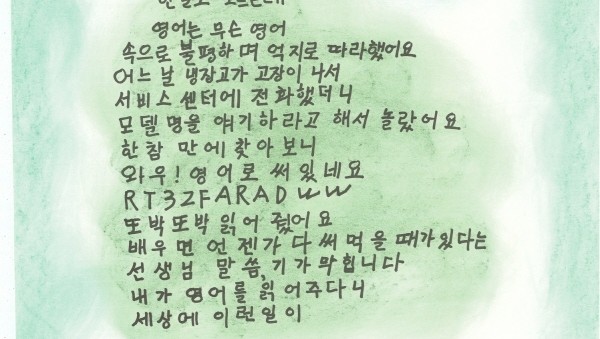 영어는 무슨 영어
속으로 불평하며 억지로 따라했어요
어느 날 냉장고가 고장이 나서
서비스 센터에 전화했더니
모델명을 얘기하라고 해서 놀랐어요
한참 만에 찾아보니
와우! 영어로 써있네요
RT32FARADWW
또박또박 읽어 줬어요
배우면 언젠가 다 써먹을때가있다는
선생님 말씀, 기가막힙니다
내가 영어를 읽어주다니
세상에 이런일이